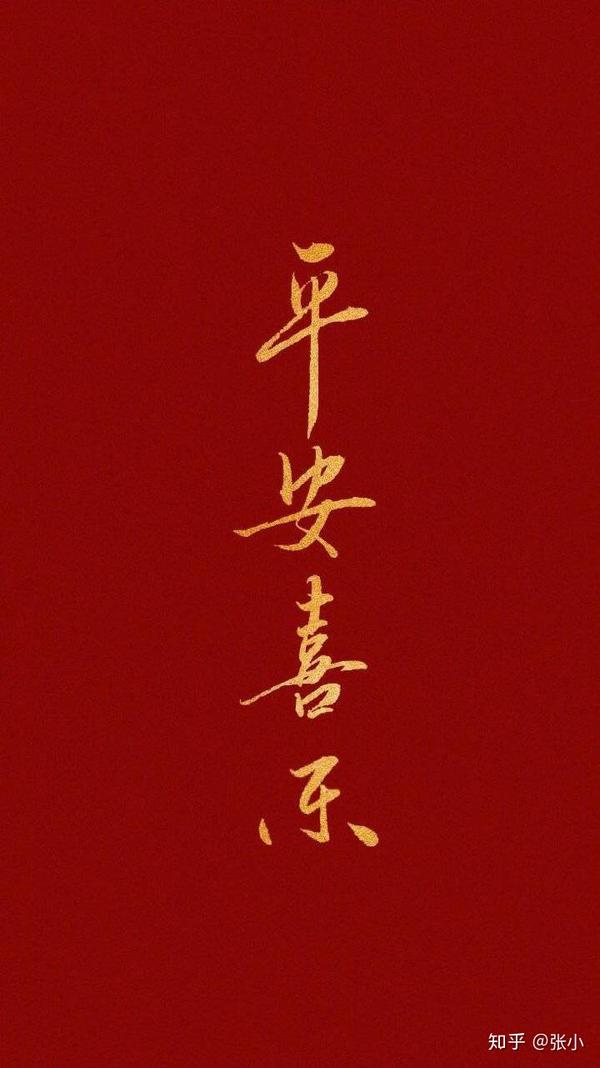 平安喜乐
知乎 @张小